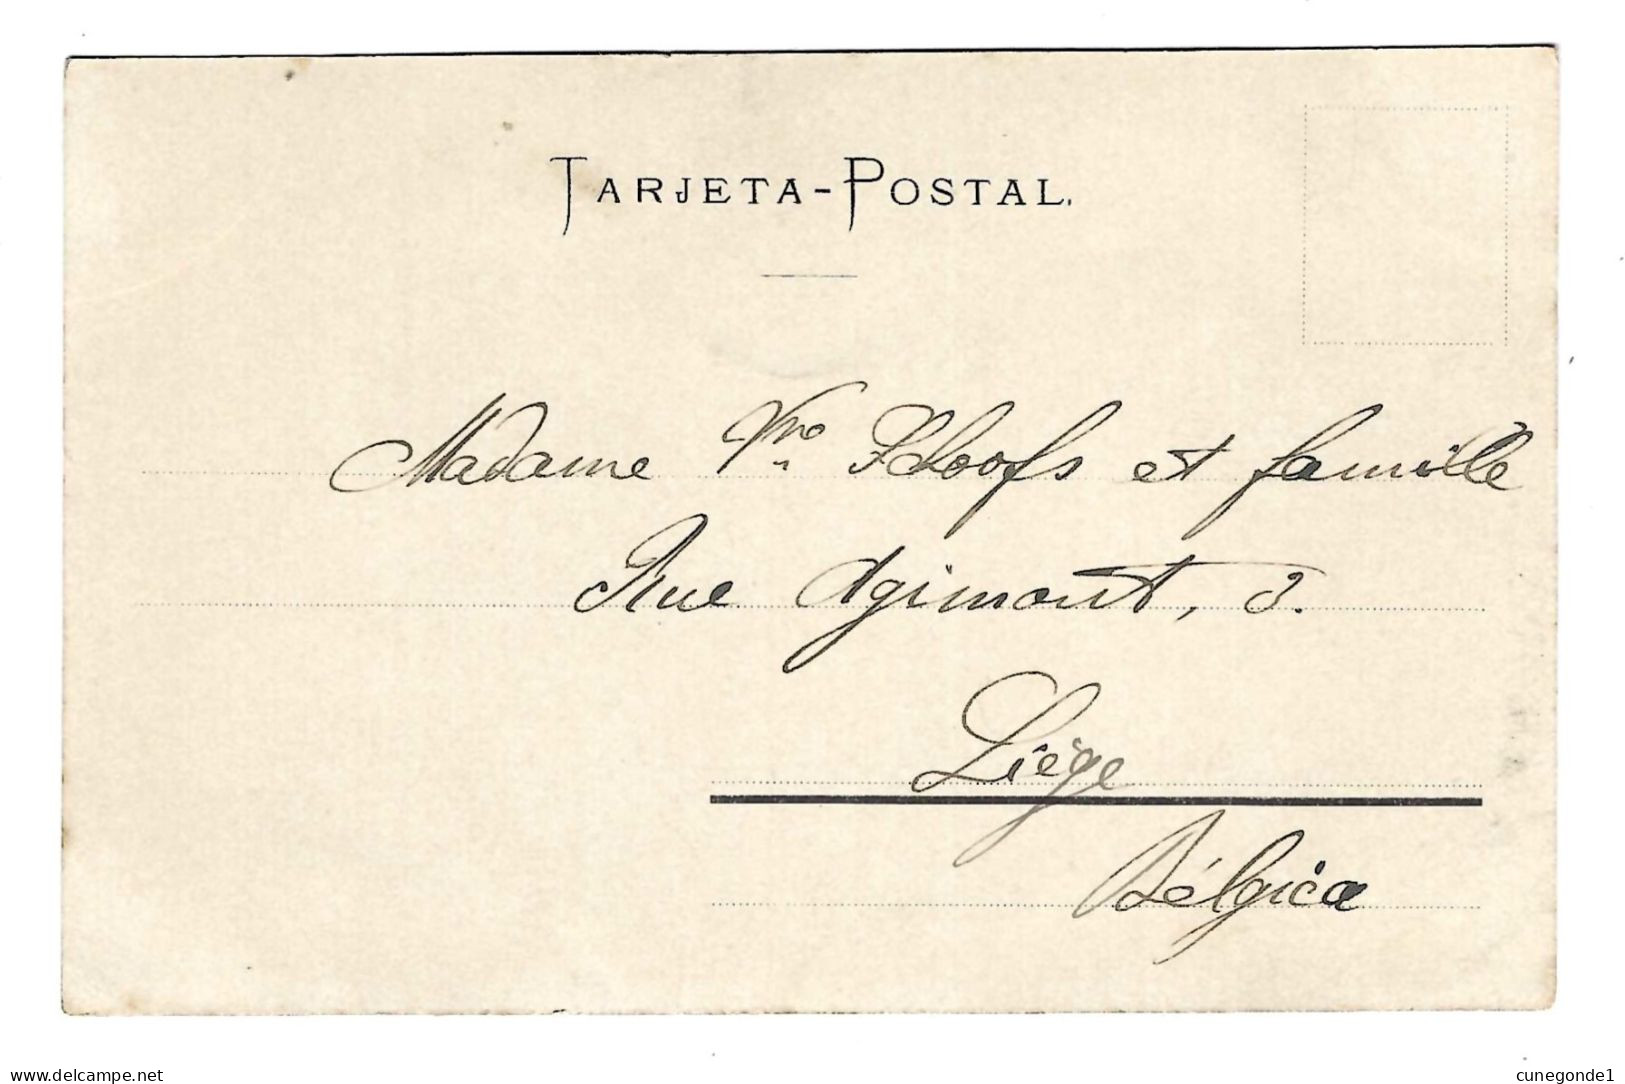 TARJETA-POSTAL.
Madame Vve et famille
Rue Agimont, 3.
Liège
Bélgica
www.delcampe.net
cunegonde1